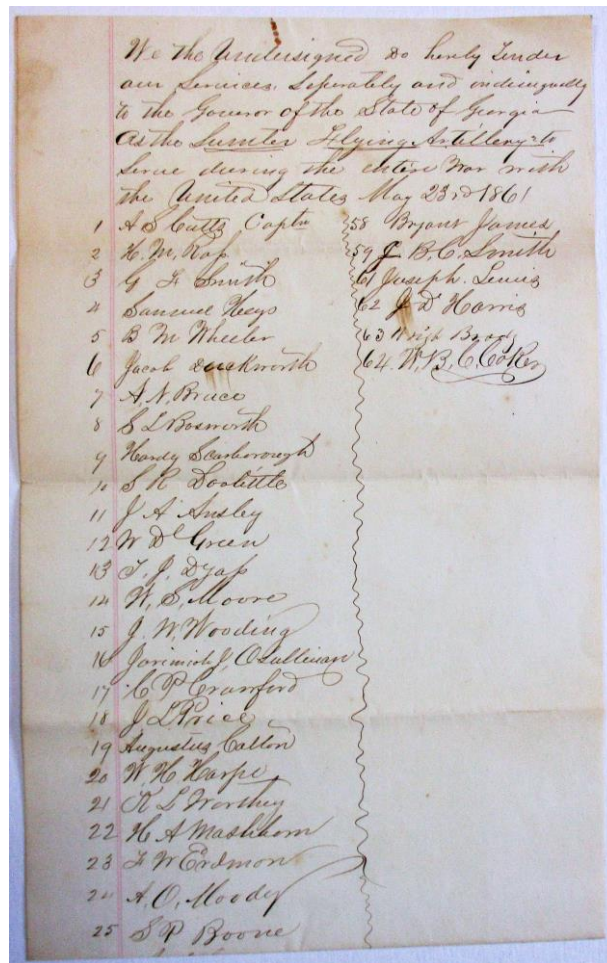 We the Undersigned do hereby Tender
our Services, Seperately and
to the Governor of the State of Georgia
As the Sumter Flying Artillery to
Serve during the entire War with
the United States May 23rd 1861
1 A S Cutts Captn
2 H. M. Rap
3 G F Smith
4 Samuel Heys
5 B M Wheeler
6 Jacob Duckworth
7 A. N. Bruce
8 S L Bosworth
9 Hardy Scarborough
10 S R Doolittle
11 J A Ansley
12 W D Green
13 T. J. Dyap
14 W. S. Moore
15 J. W. Wooding
16 Jerimiah J. OSullivan
17 C P Crawford
18 J L Price
19 Augustus Catton
20 W H Harpe
21 R L Worthey
22 H A Mashborn
23 F W Erdmon
24 A. O. Moody
25 S P Boone
58 Bryant James
59 J. B. C. Smith
61 Joseph Lewis
62 J D Harris
63
64 W. B. C. Coker